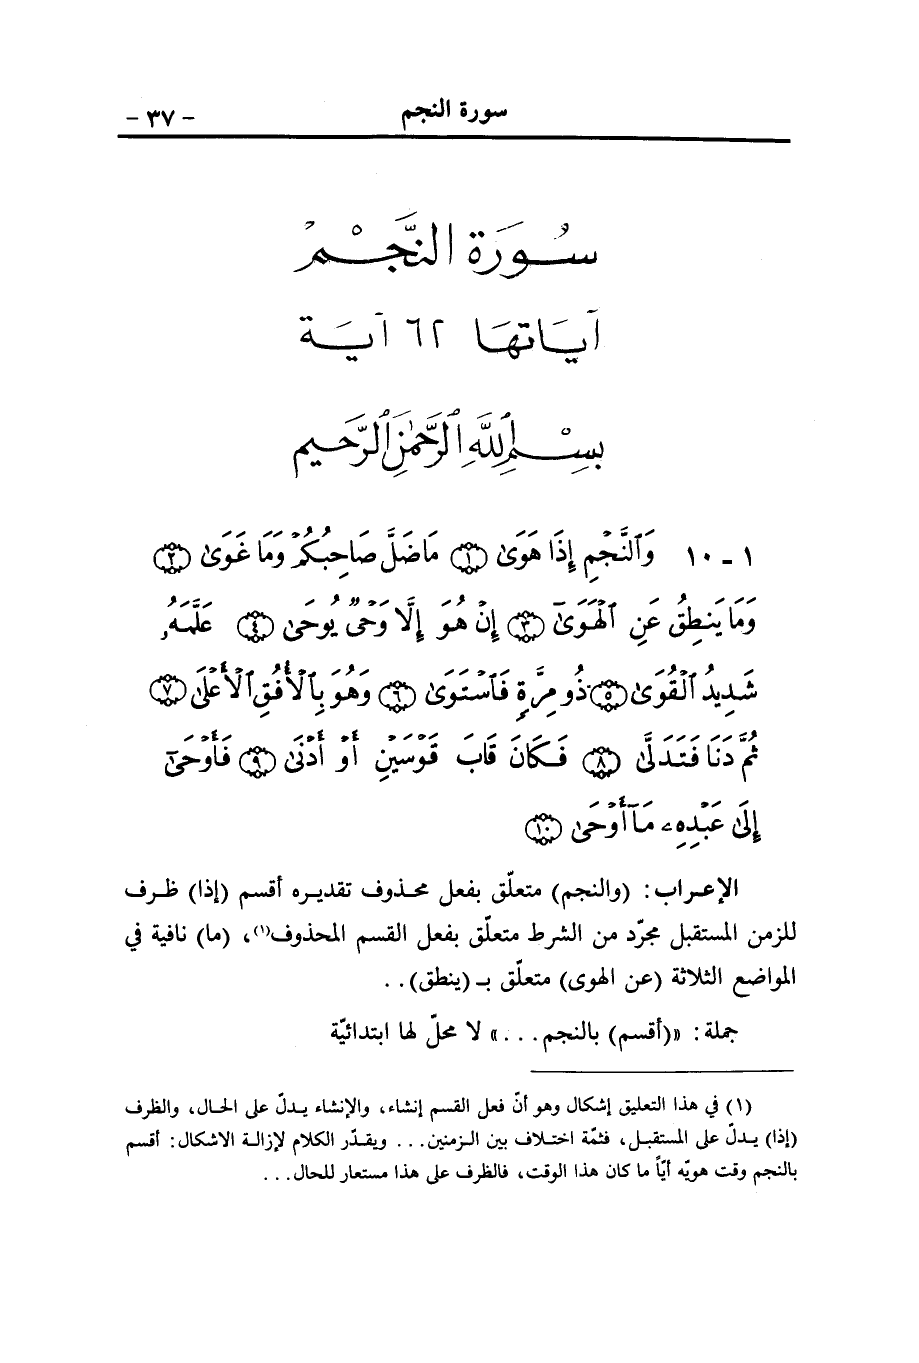 سورة النجم - ٣٧ -
سُورَةُ النَّجْمِ
آيَاتُهَا ٦٢ آيَة
بِسْمِ ٱللَّهِ ٱلرَّحْمَٰنِ ٱلرَّحِيمِ
١ - ١٠ وَٱلنَّجْمِ إِذَا هَوَىٰ ﴿١﴾ مَا ضَلَّ صَاحِبُكُمْ وَمَا غَوَىٰ ﴿٢﴾
وَمَا يَنطِقُ عَنِ ٱلْهَوَىٰٓ ﴿٣﴾ إِنْ هُوَ إِلَّا وَحْىٌ يُوحَىٰ ﴿٤﴾ عَلَّمَهُۥ
شَدِيدُ ٱلْقُوَىٰ ﴿٥﴾ ذُو مِرَّةٍ فَٱسْتَوَىٰ ﴿٦﴾ وَهُوَ بِٱلْأُفُقِ ٱلْأَعْلَىٰ ﴿٧﴾
ثُمَّ دَنَا فَتَدَلَّىٰ ﴿٨﴾ فَكَانَ قَابَ قَوْسَيْنِ أَوْ أَدْنَىٰ ﴿٩﴾ فَأَوْحَىٰٓ
إِلَىٰ عَبْدِهِۦ مَآ أَوْحَىٰ ﴿١٠﴾
الإعراب: (والنجم) متعلّق بفعل محذوف تقديره أقسم (إذا) ظرف
للزمن المستقبل مجرّد من الشرط متعلّق بفعل القسم المحذوف(١)، (ما) نافية في
المواضع الثلاثة (عن الهوى) متعلّق بـ (ينطق)..
جملة: «(أقسم) بالنجم...» لا محلّ لها ابتدائيّة
(١) في هذا التعليق إشكال وهو أنّ فعل القسم إنشاء، والإنشاء يدلّ على الحال، والظرف
(إذا) يدلّ على المستقبل، فثمّة اختلاف بين الزمنين... ويقدّر الكلام لإزالة الاشكال: أقسم
بالنجم وقت هويّه أيّاً ما كان هذا الوقت، فالظرف على هذا مستعار للحال...